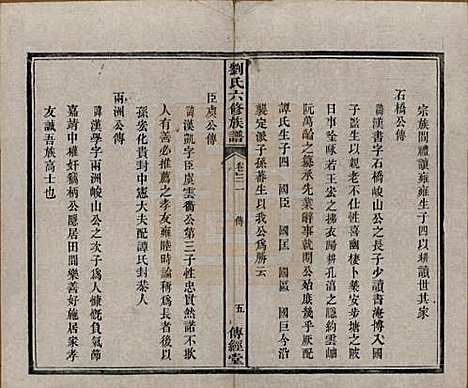 宗族間禮讓雍雍生子四以耕讀世其家
石橋公傳
諱漢書字石橋峻山公之長子少讀書淹博入國
子監生以親老不樂仕進性喜幽棲卜築安步塘之
日壺吟眺若王宏之掛耕孔淳之隱約雲岫
阮萬齡之纂承先業辭事就閒公始庶幾乎厥配
譚氏生子四 國臣 國匡 國區 國巨今沿
襲定派子孫蕃生以我公為勝云
劉氏六修族譜
卷三二 傳
五 傳經堂
臣虞公傳
諱漢凱字臣虞雲衢公第三子性忠實然諾不欺
人有善必推薦之孝友雍睦時論稱為長者以
孫宏化貴封中憲大夫配譚氏封恭人
兩洲公傳
諱漢學字兩洲峻山公之次子為人慷慨負氣節
嘉靖中權奸竊柄公隱居田間樂善好施居家孝
友誠吾族高士也